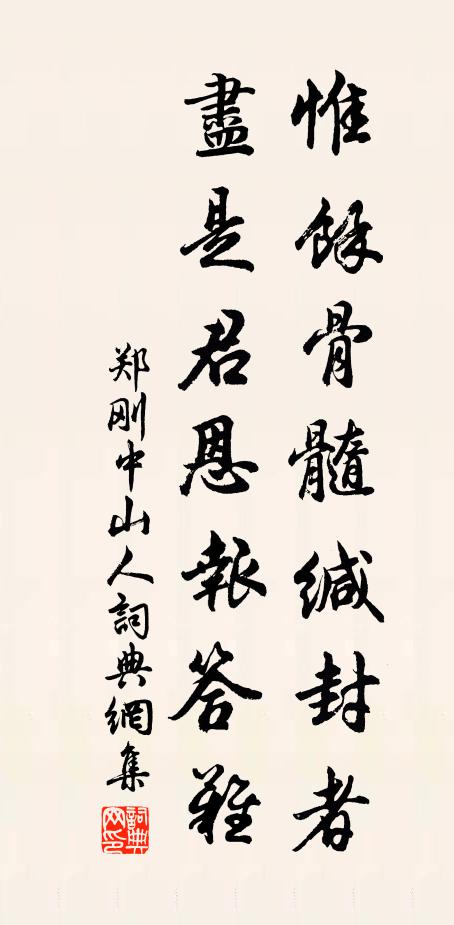 惟餘骨髓緘封者
盡是君恩報答難
郑刚中山人詞典網集
詞典网印